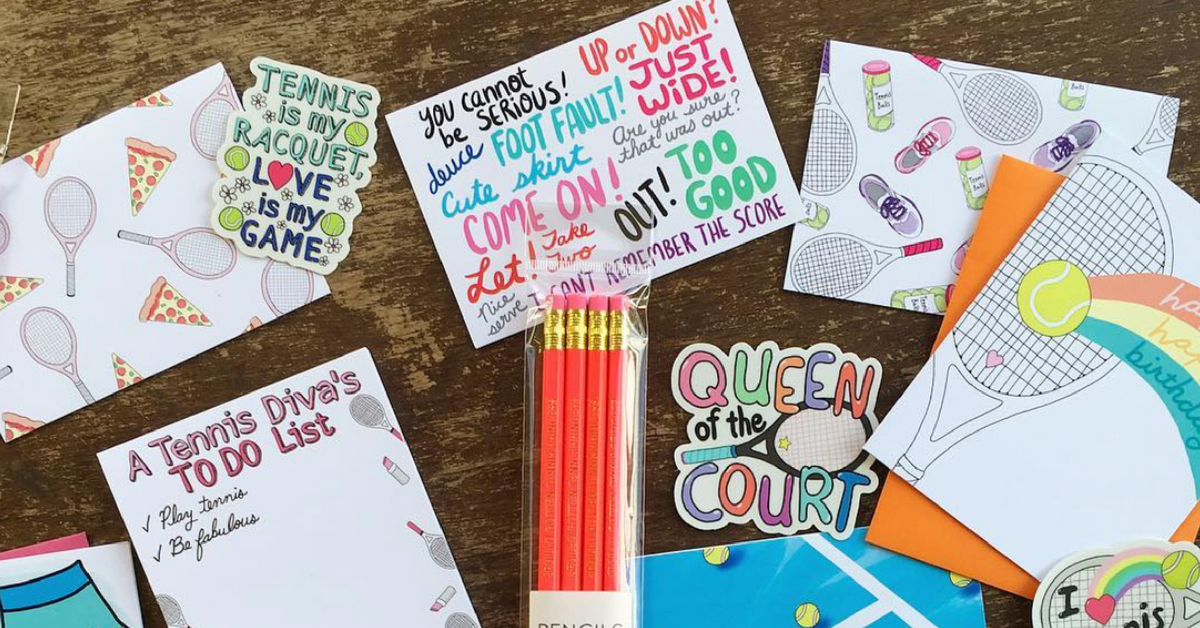 TENNIS
is my
RACQUET,
LOVE
is my
GAME
you cannot
be SERIOUS!
UP or DOWN?
deuce
FOOT FAULT!
JUST
WIDE!
Cute skirt
Are you sure
that was out?
COME ON!
OUT!
TOO
GOOD
Let!
Take
Two
Nice
serve
I CAN'T REMEMBER THE SCORE
Tennis
Balls
Tennis
Balls
A Tennis Diva's
TO DO List
√ Play tennis
√ Be fabulous
QUEEN
of the
COURT
birthday
I
PENCILS